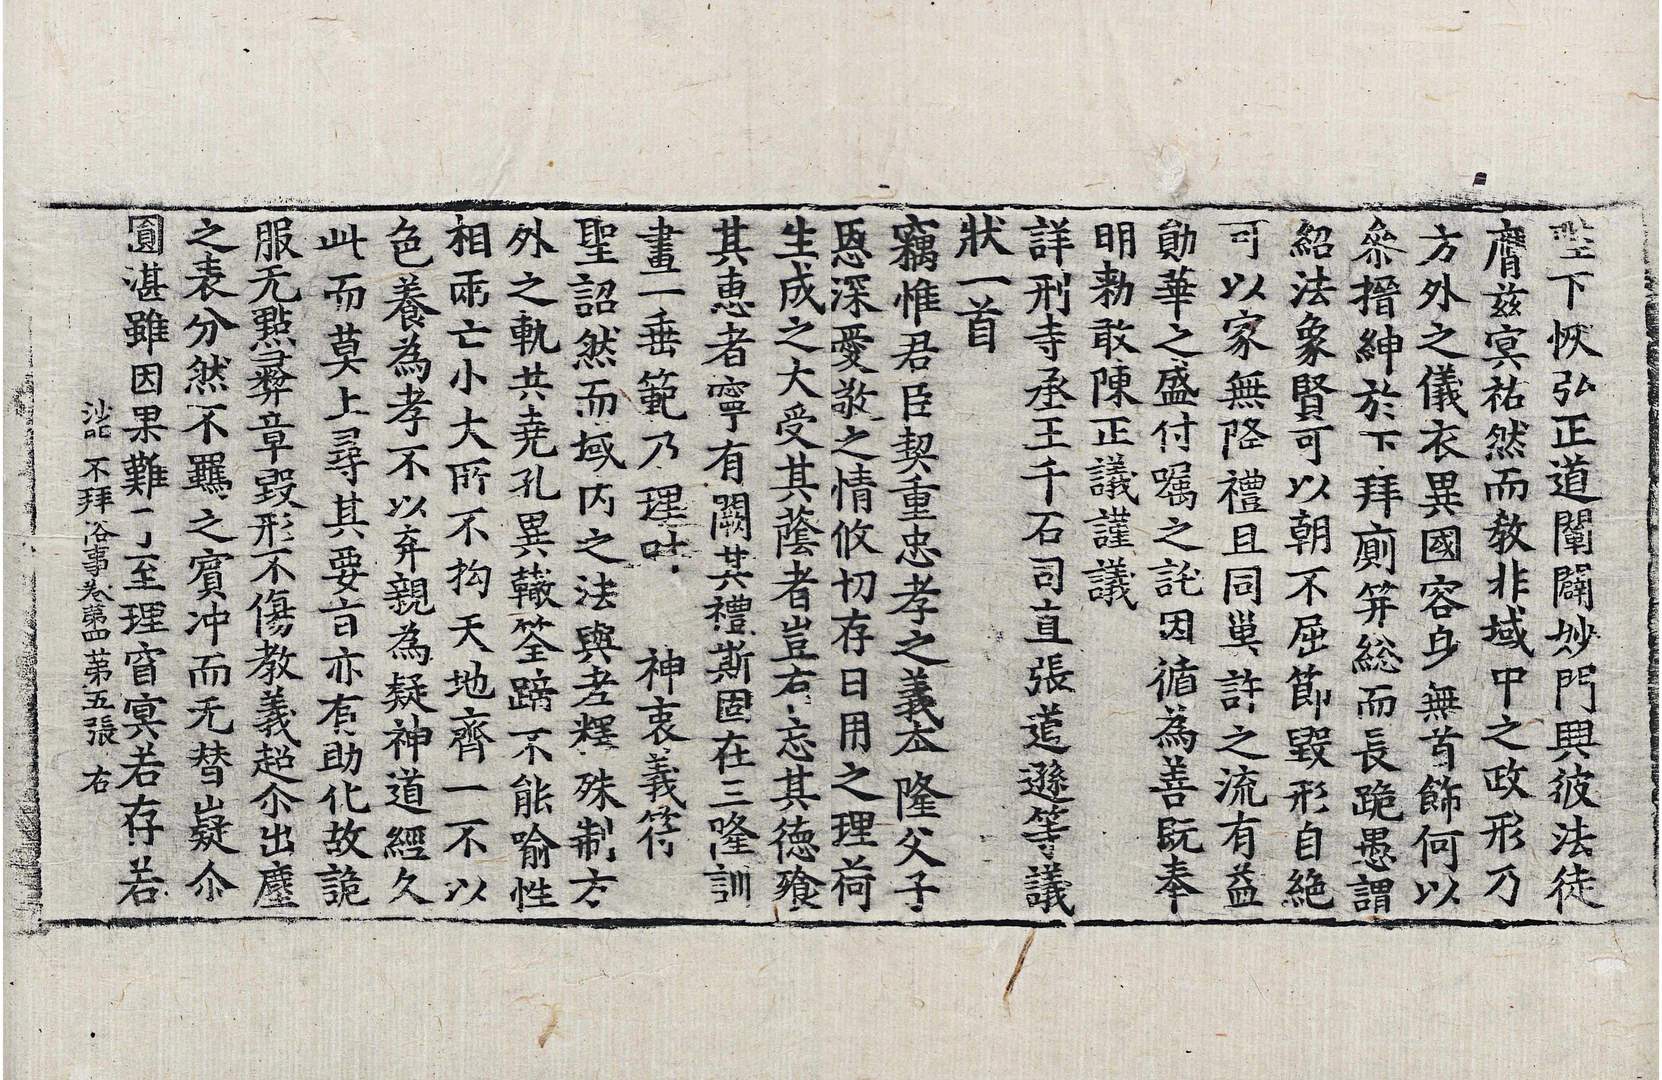 陛下恢弘正道闡闢妙門興彼法徒
膺茲冥祐然而教非域中之政形乃
方外之儀衣異國容身無首飾何以
叅搢紳於下拜廁笄総而長跪愚謂
紹法象賢可以朝不屈節毀形自絶
可以家無降禮且同巢許之流有益
勛華之盛付囑之託因循為善既奉
明勑敢陳正議謹議
詳刑寺丞王千石司直張道遜等議
狀一首
竊惟君臣契重忠孝之義夲隆父子
恩深愛敬之情攸切存日用之理荷
生成之大受其蔭者豈右忘其徳飱
其恵者寧有闕其禮斯固在三隆訓
畫一垂範乃理叶 神衷義符
聖詔然而域内之法與老釋殊制方
外之軌共堯孔異轍筌蹄不能喻性
相兩亡小大所不拘天地齊一不以
色養為孝不以弃親為疑神道經久
此而莫上尋其要盲亦有助化故詭
服无點彛章毀形不傷教義超尒出塵
之表分然不羈之賔冲而无替嶷尒
圓湛雖因果難了至理窅冥若存若
沙訑 不拜俗事卷第四 第五張 右